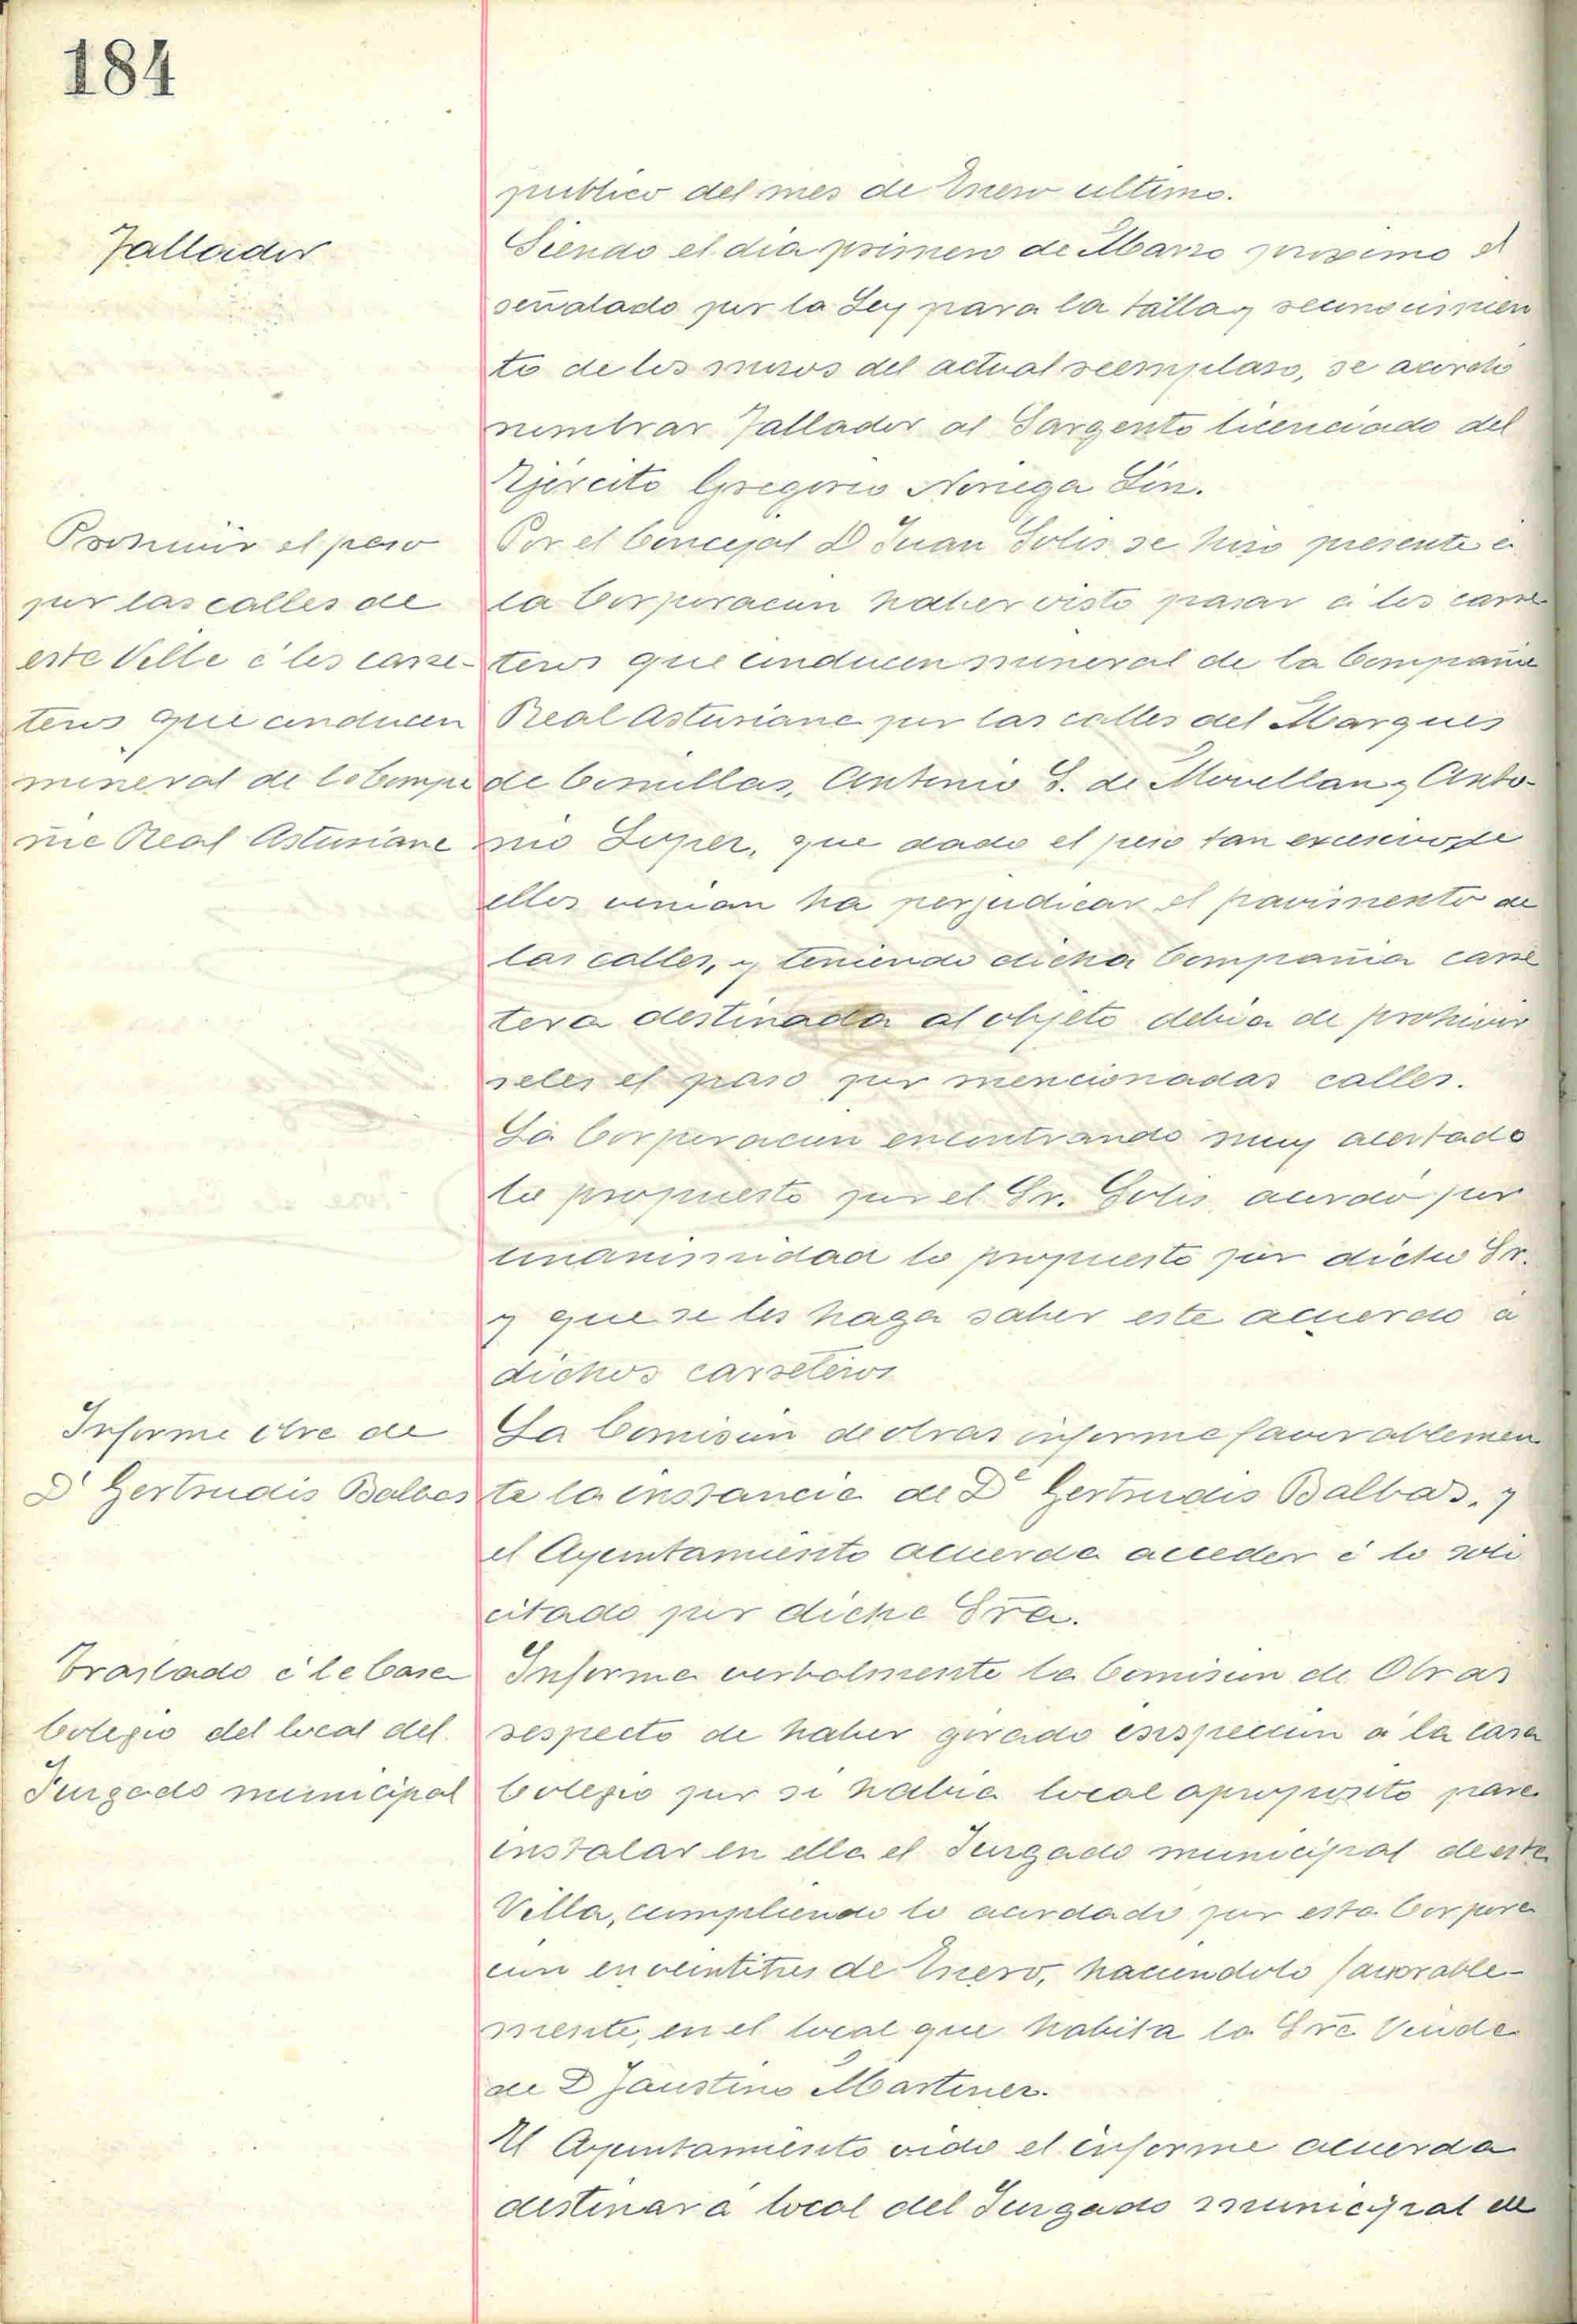 184
publico del mes de Enero ultimo.
Tallador
Siendo el dia primero de Marzo proximo el
señalado por la Ley para la talla y reconocimien
to de los mozos del actual reemplazo, se acordó
nombrar Tallador al Sargento licenciado del
Ejército Gregorio Noriega Lin.
Prohivir el paso
por las calles de
esta Villa á los carre-
teros que conducen
mineral de la Compa
ñia Real Asturiana
Por el Concejal D Juan Solis, se hizo presente á
la Corporacion haber visto pasar á los carre
teros que conducen mineral de la Compañia
Real Asturiana por las calles del Marques
de Comillas, Antonio S. de Movellan y Anto-
nio Lopez, que dado el peso tan excesivo de
ellos venian ha perjudicar el pavimento de
las calles, y teniendo dicha Compañia carre
tera destinada al objeto debia de prohivir
seles el paso por mencionadas calles.
La Corporacion encontrando muy acertado
lo propuesto por el Sr. Solis, acordó por
unanimidad lo propuesto por dicho Sr.
y que se les haga saber este acuerdo á
dichos carreteros
Informe obra de
Dª Gertrudis Balbas
La Comision de obras informa favorablemen
te la instancia de Dª Gertrudis Balbas, y
el Ayuntamiento acuerda acceder á lo soli
citado por dicha Sra.
Traslado á la Casa
Colegio del local del
Juzgado municipal
Informa verbalmente la Comision de Obras
respecto de haber girado inspeccion á la casa
Colegio por si habia local aproposito para
instalar en ella el Juzgado municipal de esta
Villa, cumpliendo lo acordado por esta Corpora
cion en veintitres de Enero, haciendolo favorable-
mente, en el local que habita la Sra. Viuda
de D Faustino Martinez.
El Ayuntamiento oido el informe acuerda
destinar á local del Juzgado municipal el